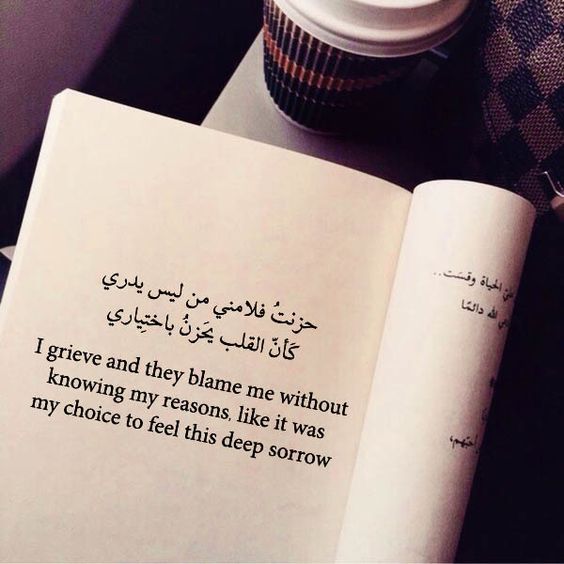 حزنتُ فلامني من ليس يدري
كَأنّ القلب يَحَزنُ باختِياري
I grieve and they blame me without
knowing my reasons, like it was
my choice to feel this deep sorrow
الحياة وقست..
الله دائمًا